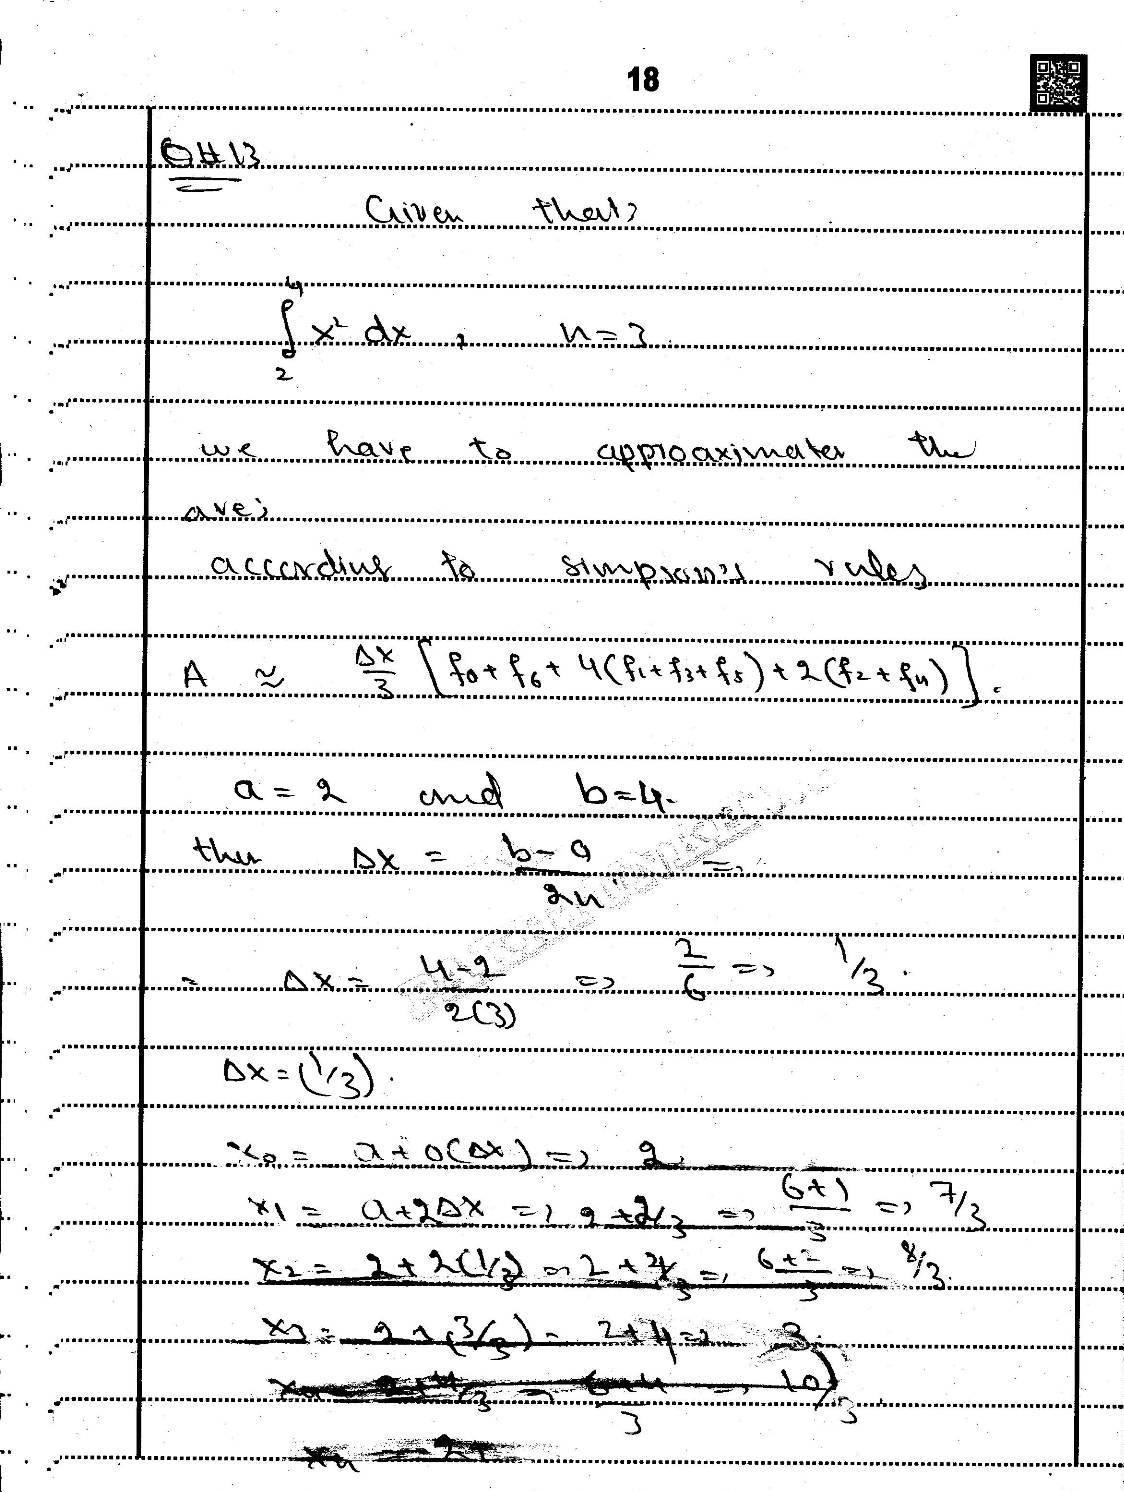 18
Q#13
Given that;
∫₂⁴ x² dx , n=3
we have to approaximater the
are;
according to simpson's rules
A ≈ Δx/3 [f₀+f₆+4(f₁+f₃+f₅)+2(f₂+f₄)].
a = 2 and b=4.
then Δx = b-a/2n =>
= Δx = 4-2/2(3) => 2/6 => 1/3.
Δx=(1/3).
x₀ = a+0(Δx) => 2.
x₁ = a+2Δx => 2+2/3 => 6+1/3 => 7/3
x₂ = 2+2(1/3) => 2+2/3 => 6+2/3 => 8/3.
x₃ = 2+(3/3) = 2+4 => 3.
x₄ = 2+4/3 = 6+4/3 => 10/3.